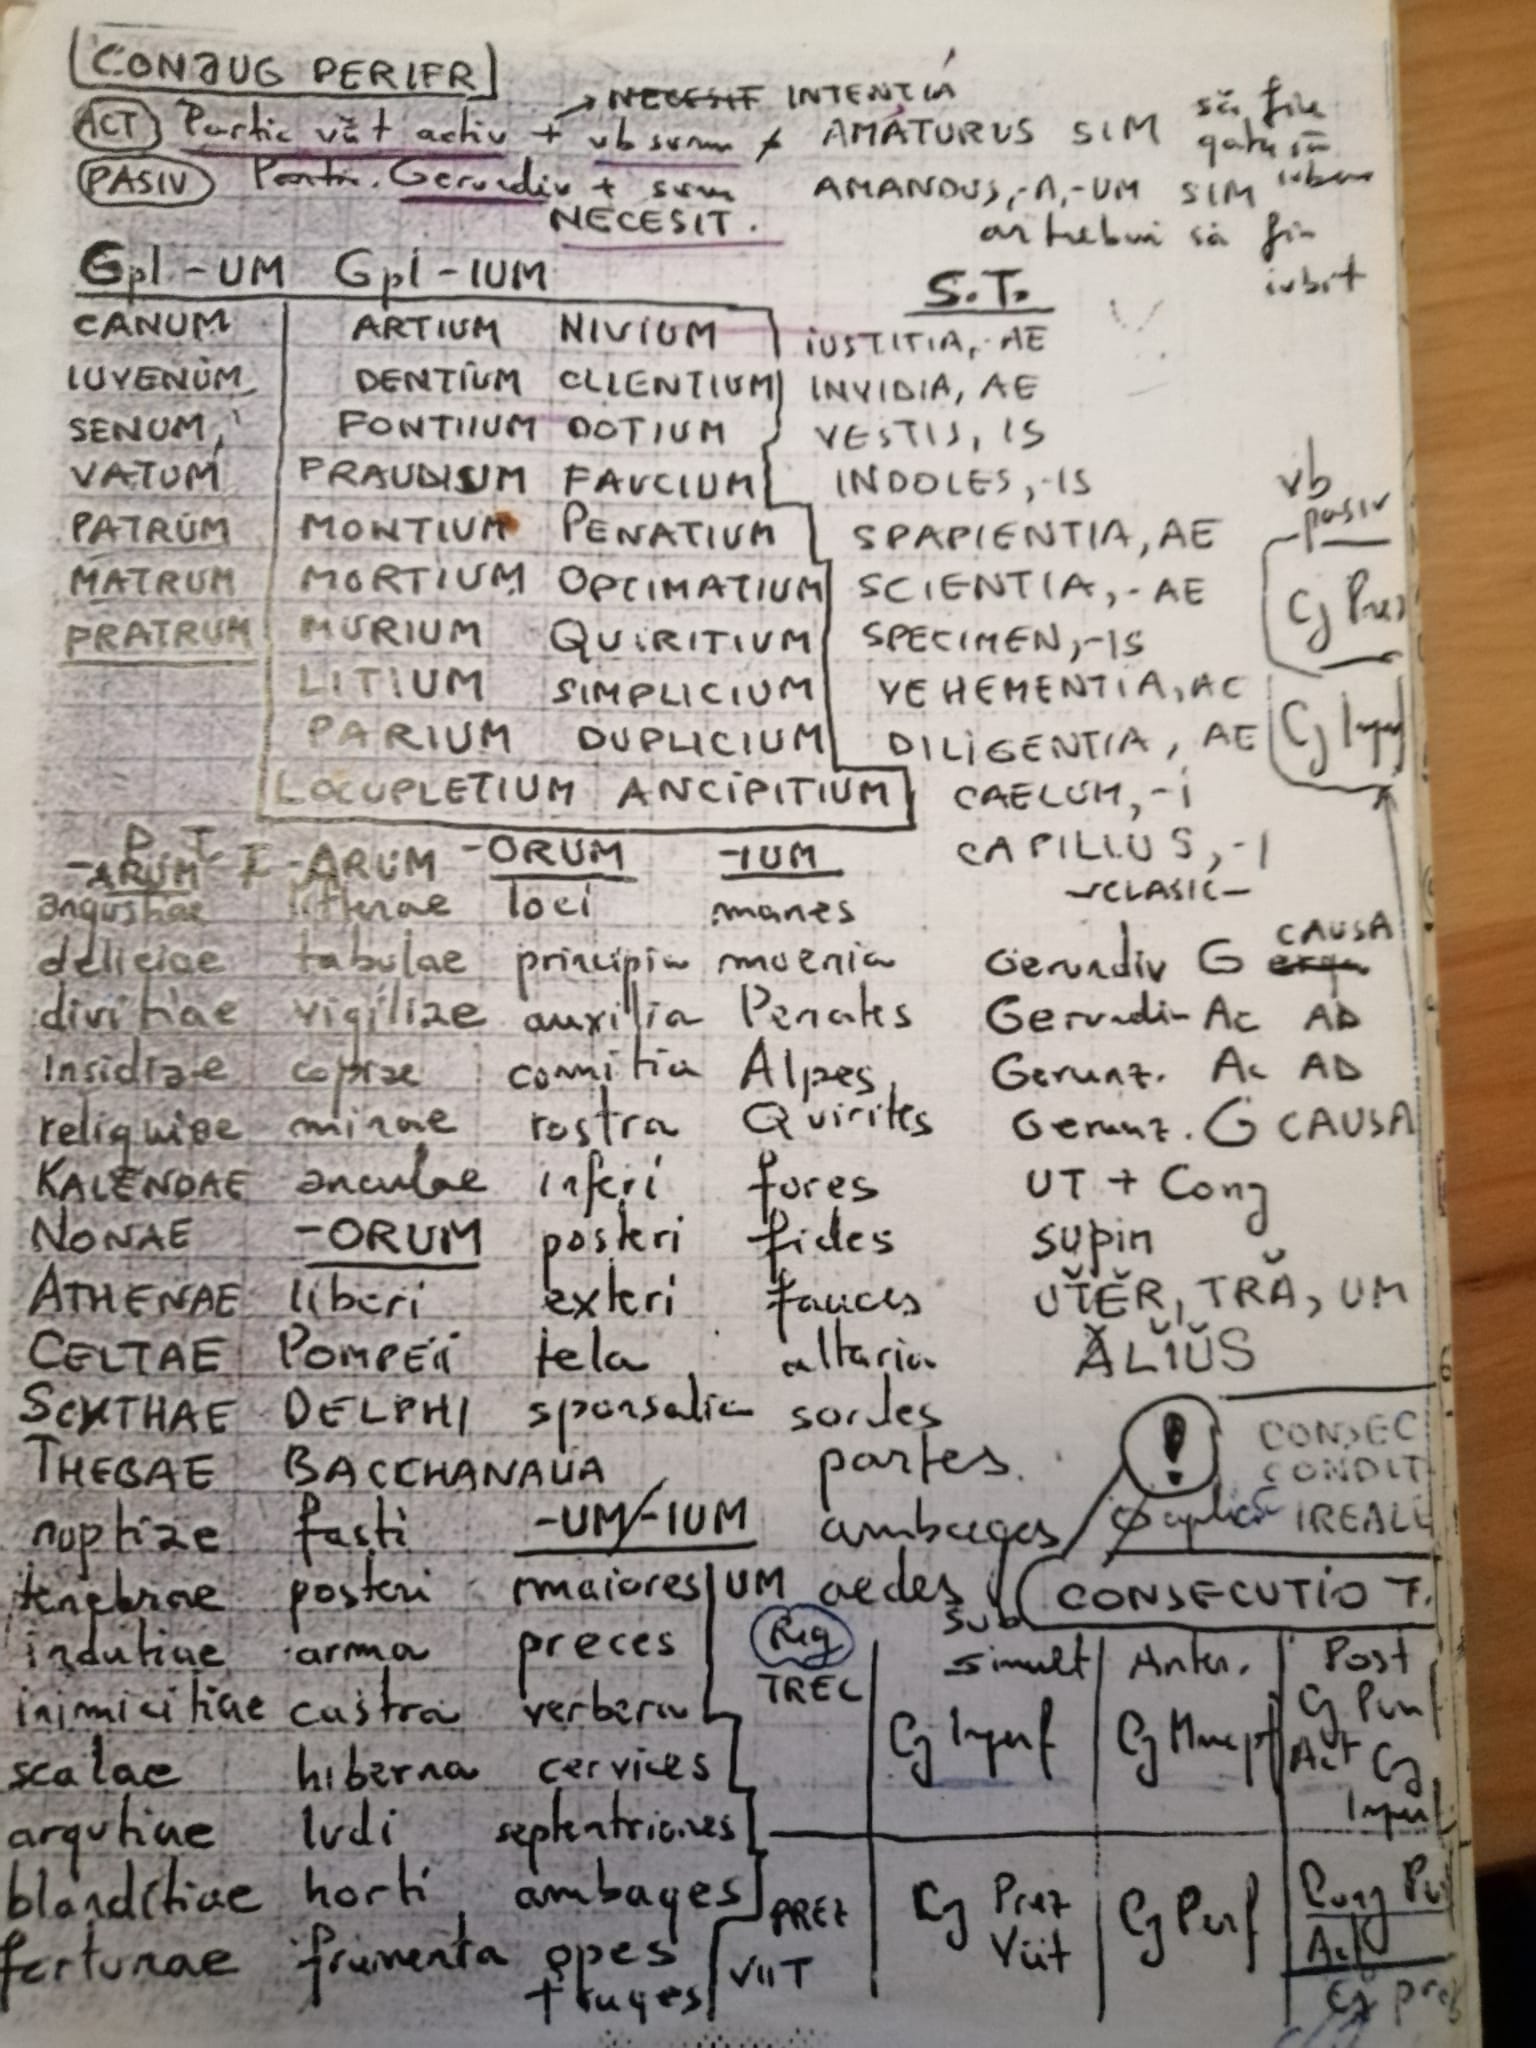 CONJUG PERIFR
NECESIT INTENȚIA
ACT Partic viit activ + vb sum AMATURUS SIM să fie gata să iubesc
PASIV Gerundiv + sum AMANDUS,-A,-UM SIM
NECESIT. ar trebui să fiu iubit
Gpl -UM Gpl -IUM S.T.
CANUM ARTIUM NIVIUM IUSTITIA,-AE
IUVENUM DENTIUM CLIENTIUM INVIDIA, AE
SENUM, FONTIIUM DOTIUM VESTIS, IS
VATUM FRAUDIUM FAUCIUM INDOLES,-IS
vb pasiv
PATRUM MONTIUM PENATIUM SPAPIENTIA, AE
MATRUM MORTIUM OPTIMATIUM SCIENTIA,-AE Cj Prez
FRATRUM MURIUM QUIRITIUM SPECIMEN,-IS
LITIUM SIMPLICIUM VEHEMENTIA, AE
PARIUM DUPLICIUM DILIGENTIA, AE Cj Imperf
LOCUPLETIUM ANCIPITIUM CAELUM,-I
P.T.
-ARUM -ARUM -ORUM -IUM CAPILLUS,-I
CLASIC
angustiae litterae loci manes
CAUSA
deliciae tabulae principia moenia Gerundiv G erga
divitiae vigiliae auxilia Penates Gerundiv Ac AD
insidiae copiae comitia Alpes, Gerunz. Ac AD
reliquiae minae rostra Quirites Gerunz. G CAUSA
KALENDAE inferi fores UT + Conj
NONAE -ORUM posteri fides supin
ATHENAE liberi exteri fauces ŬTĔR, TRĂ, UM
CELTAE POMPEII tela altaria ĂLĬŬS
SCYTHAE DELPHI sponsalia sordes
THEBAE BACCHANALIA partes
! CONSEC CONDIT
nuptiae fasti -UM/-IUM ambages
tenebrae posteri maiores UM aedes CONSECUTIO T.
indutiae arma preces Reg simult Anter. Post
TREC
inimicitiae castra verbera Cj Imperf Cj Mmcpf
scalae hiberna cervices Act Cj
argutiae ludi septentriones Imperf
blanditiae horti ambages PREZ Cj Prez Cj Perf
fortunae frumenta opes VIIT Viit
+ fruges Cj prez